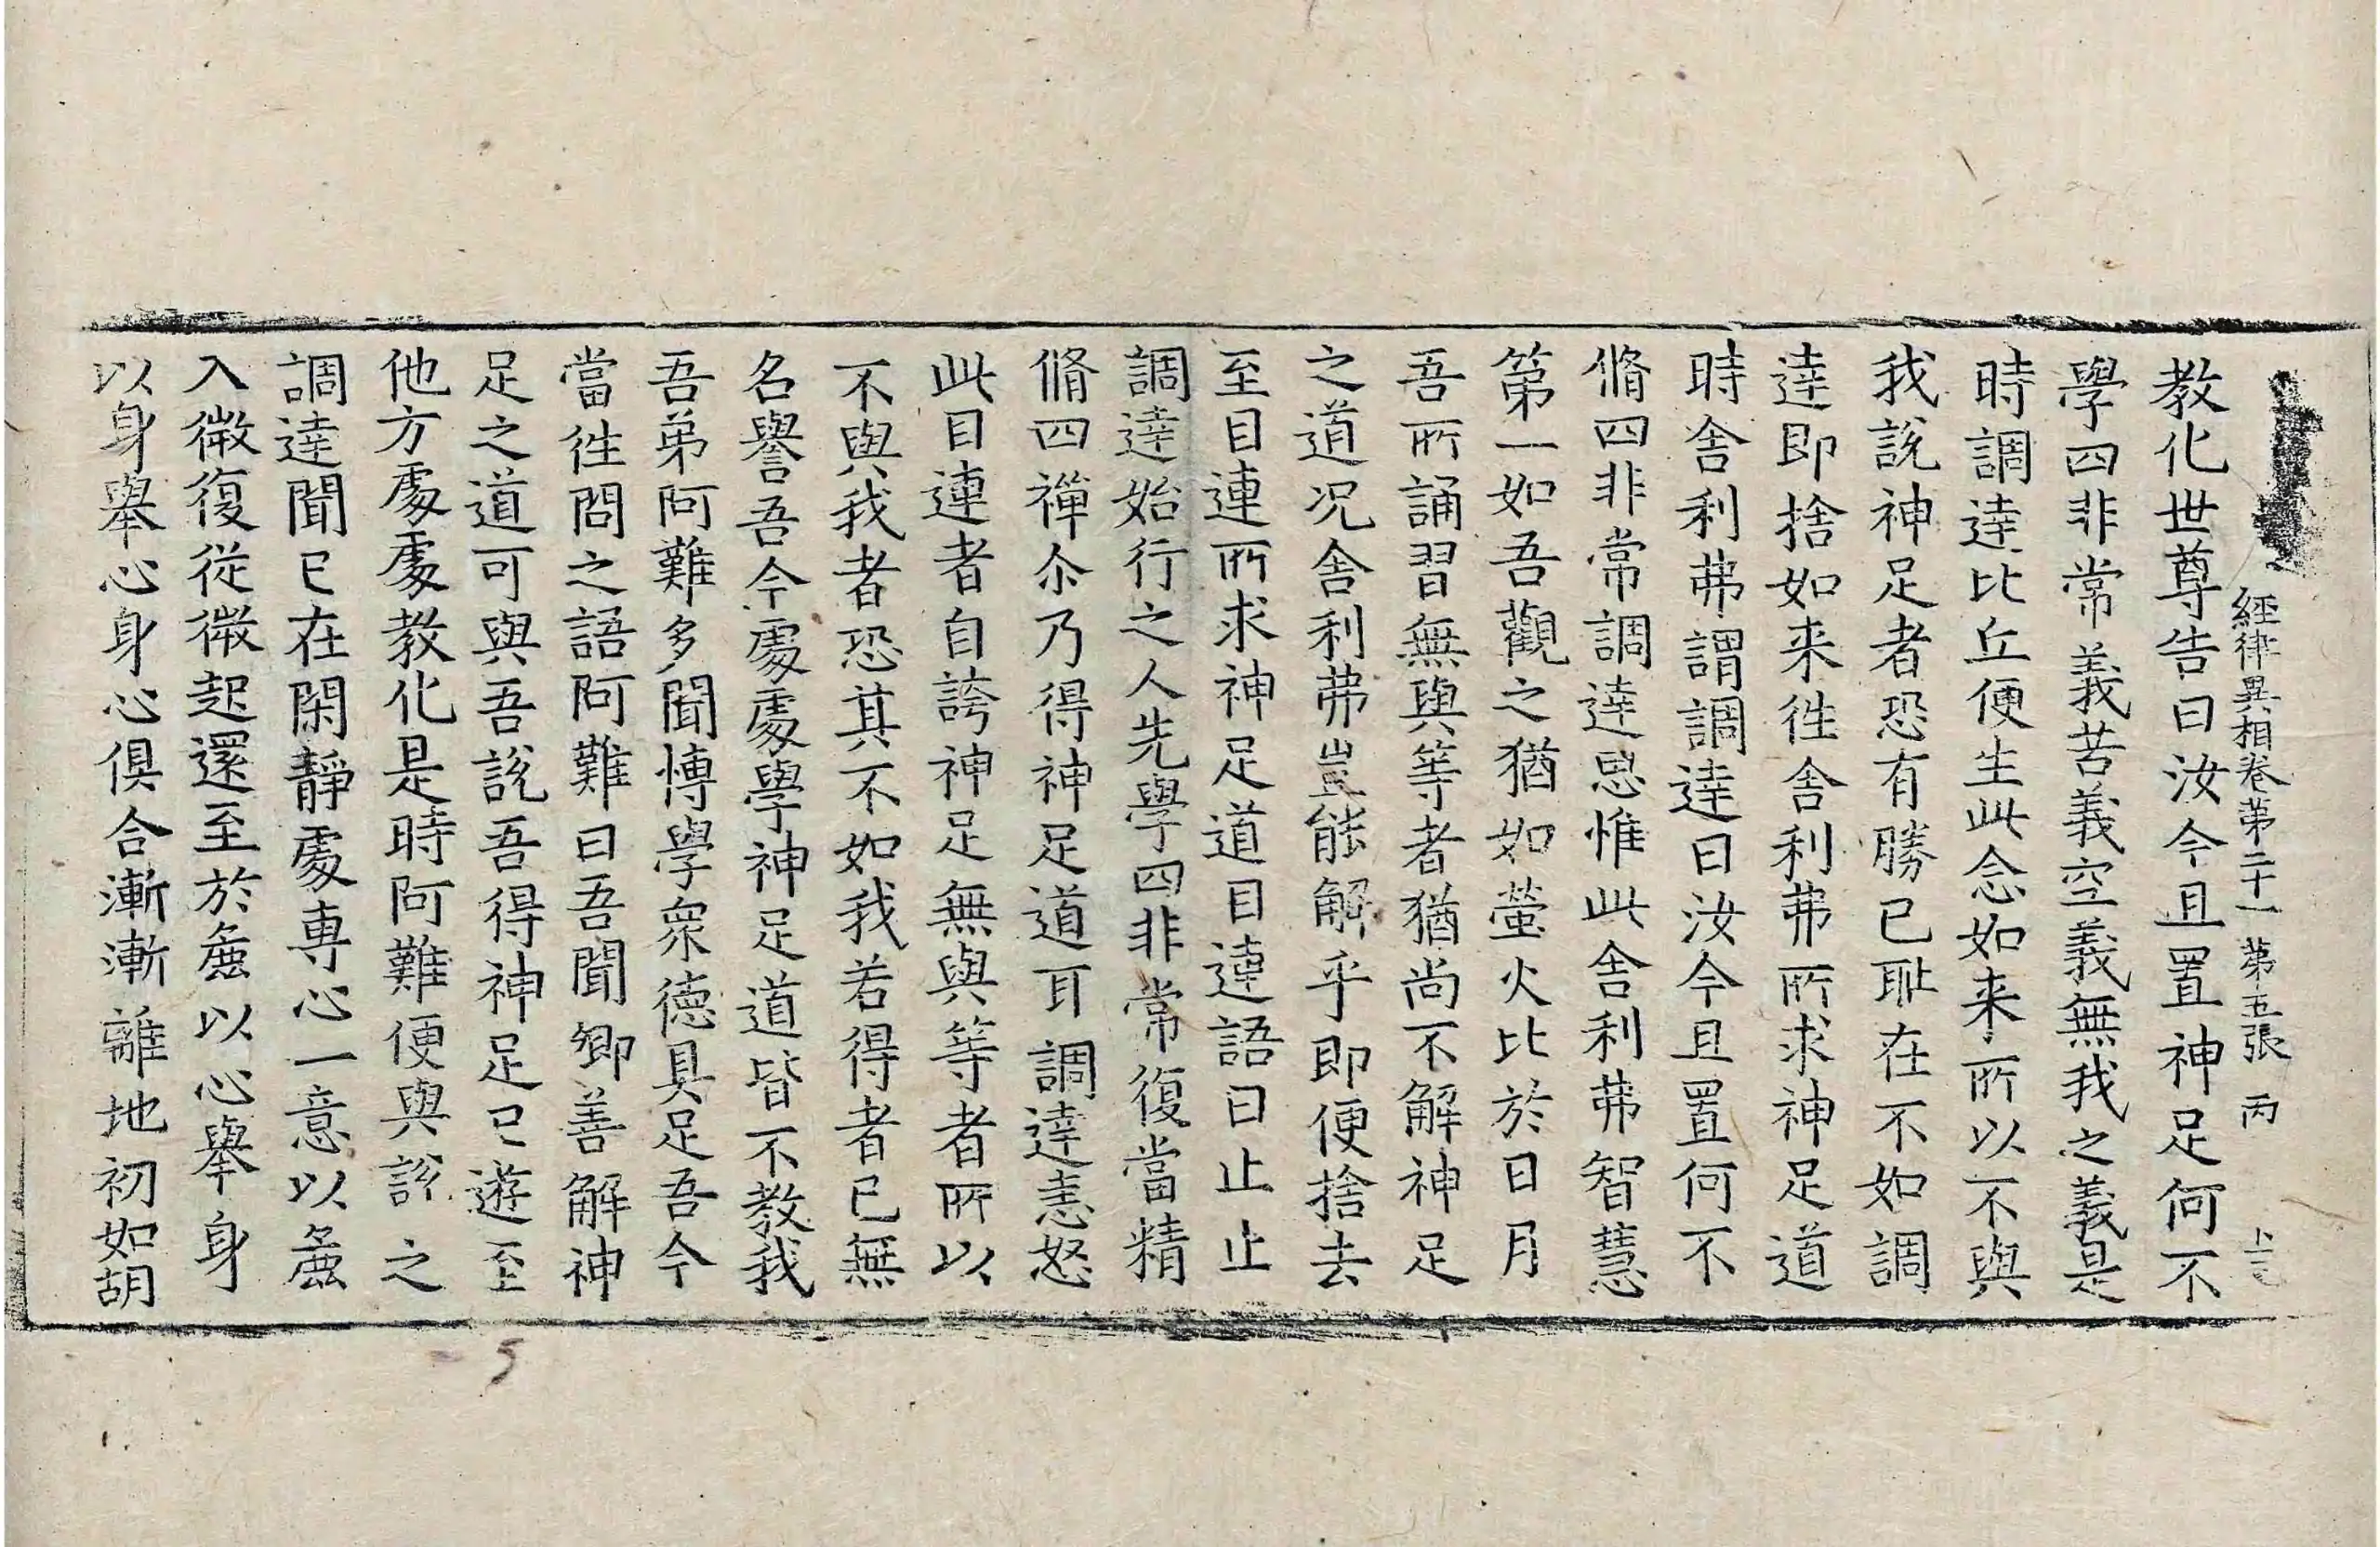 經律異相卷第二十一 第五張 丙
教化世尊告曰汝今且置神足何不
學四非常義苦義空義無我之義是
時調達比丘便生此念如来所以不與
我說神足者恐有勝己耻在不如調
達即捨如来徃舍利弗所求神足道
時舍利弗謂調達曰汝今且置何不
脩四非常調達思惟此舍利弗智慧
第一如吾觀之猶如螢火比於日月
吾所誦習無與等者猶尚不解神足
之道况舍利弗豈能解乎即便捨去
至目連所求神足道目連語曰止止
調達始行之人先學四非常復當精
脩四禪尒乃得神足道耳調達恚怒
此目連者自誇神足無與等者所以
不與我者恐其不如我若得者已無
名譽吾今處處學神足道皆不教我
吾弟阿難多聞博學衆德具足吾今
當徃問之語阿難曰吾聞卿善解神
足之道可與吾說吾得神足已遊至
他方處處教化是時阿難便與說之
調達聞已在閑靜處専心一意以麁
入微復從微起還至於麁以心舉身
以身舉心身心俱合漸漸離地初如胡
5